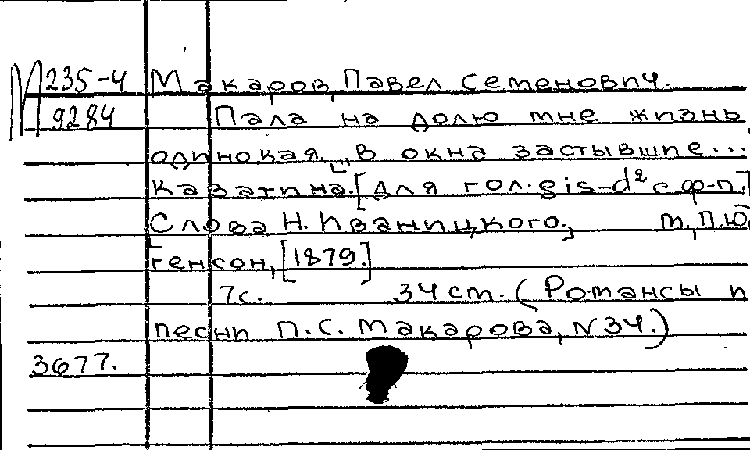 М 235-4 Макаров, Павел Семенович.
9284 Пала на долю мне жизнь
одинокая... в окна застывшие...
Каватина. [Для гол. gis-d² с ф-п.]
Слова Н. Иваницкого. М., П. Ю
генсон, [1879.]
7 с. 34 cm. (Романсы и
песни П. С. Макарова, N 34.)
3677.